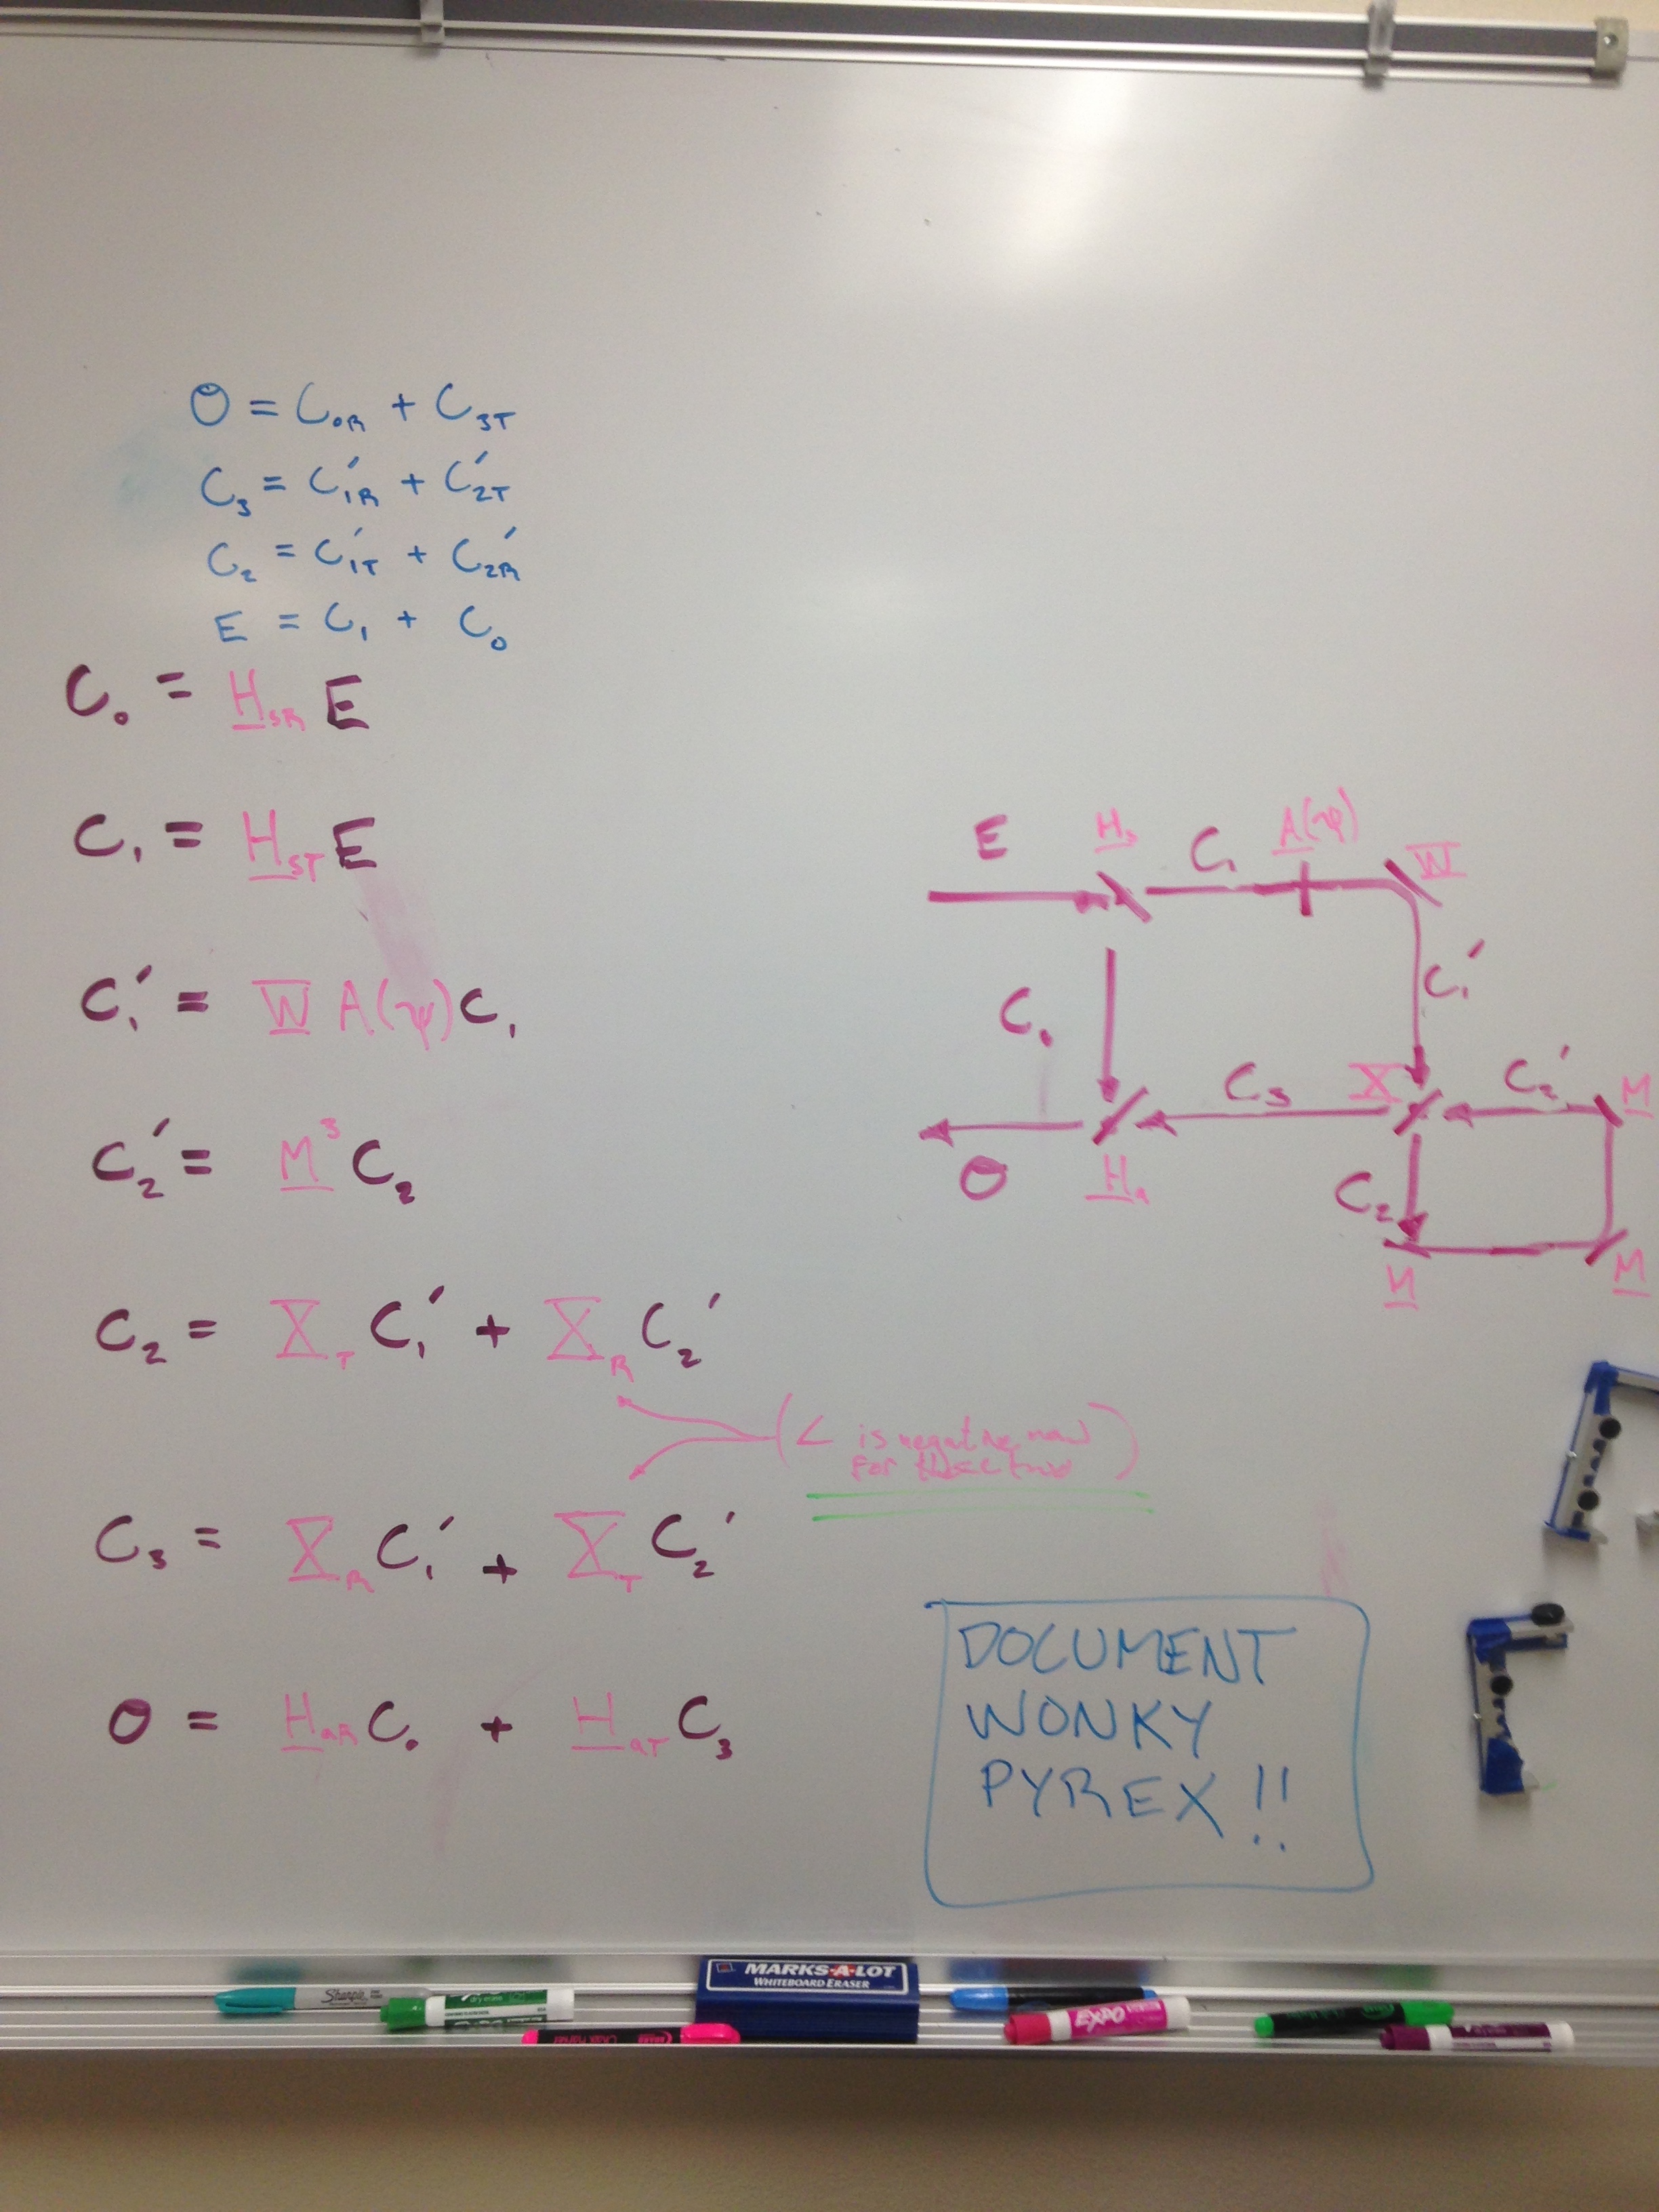 O = C₀R + C₃T
C₃ = C′₁R + C′₂T
C₂ = C′₁T + C′₂R
E = C₁ + C₀
C₀ = H̲sR E
C₁ = H̲sT E
C₁′ = W̲ A(ψ) C₁
C₂′ = M̲³ C₂
C₂ = X̲T C₁′ + X̲R C₂′
(∠ is negative now
for these two)
C₃ = X̲R C₁′ + X̲T C₂′
O = H̲aR C₀ + H̲aT C₃
E H̲s C₁ A̲(ψ) W̲
C₁′
C₀
C₃ X̲ C₂′ M̲
O H̲a C₂
M̲ M̲
DOCUMENT
WONKY
PYREX!!
MARKS-A-LOT
WHITEBOARD ERASER
Sharpie
EXPO